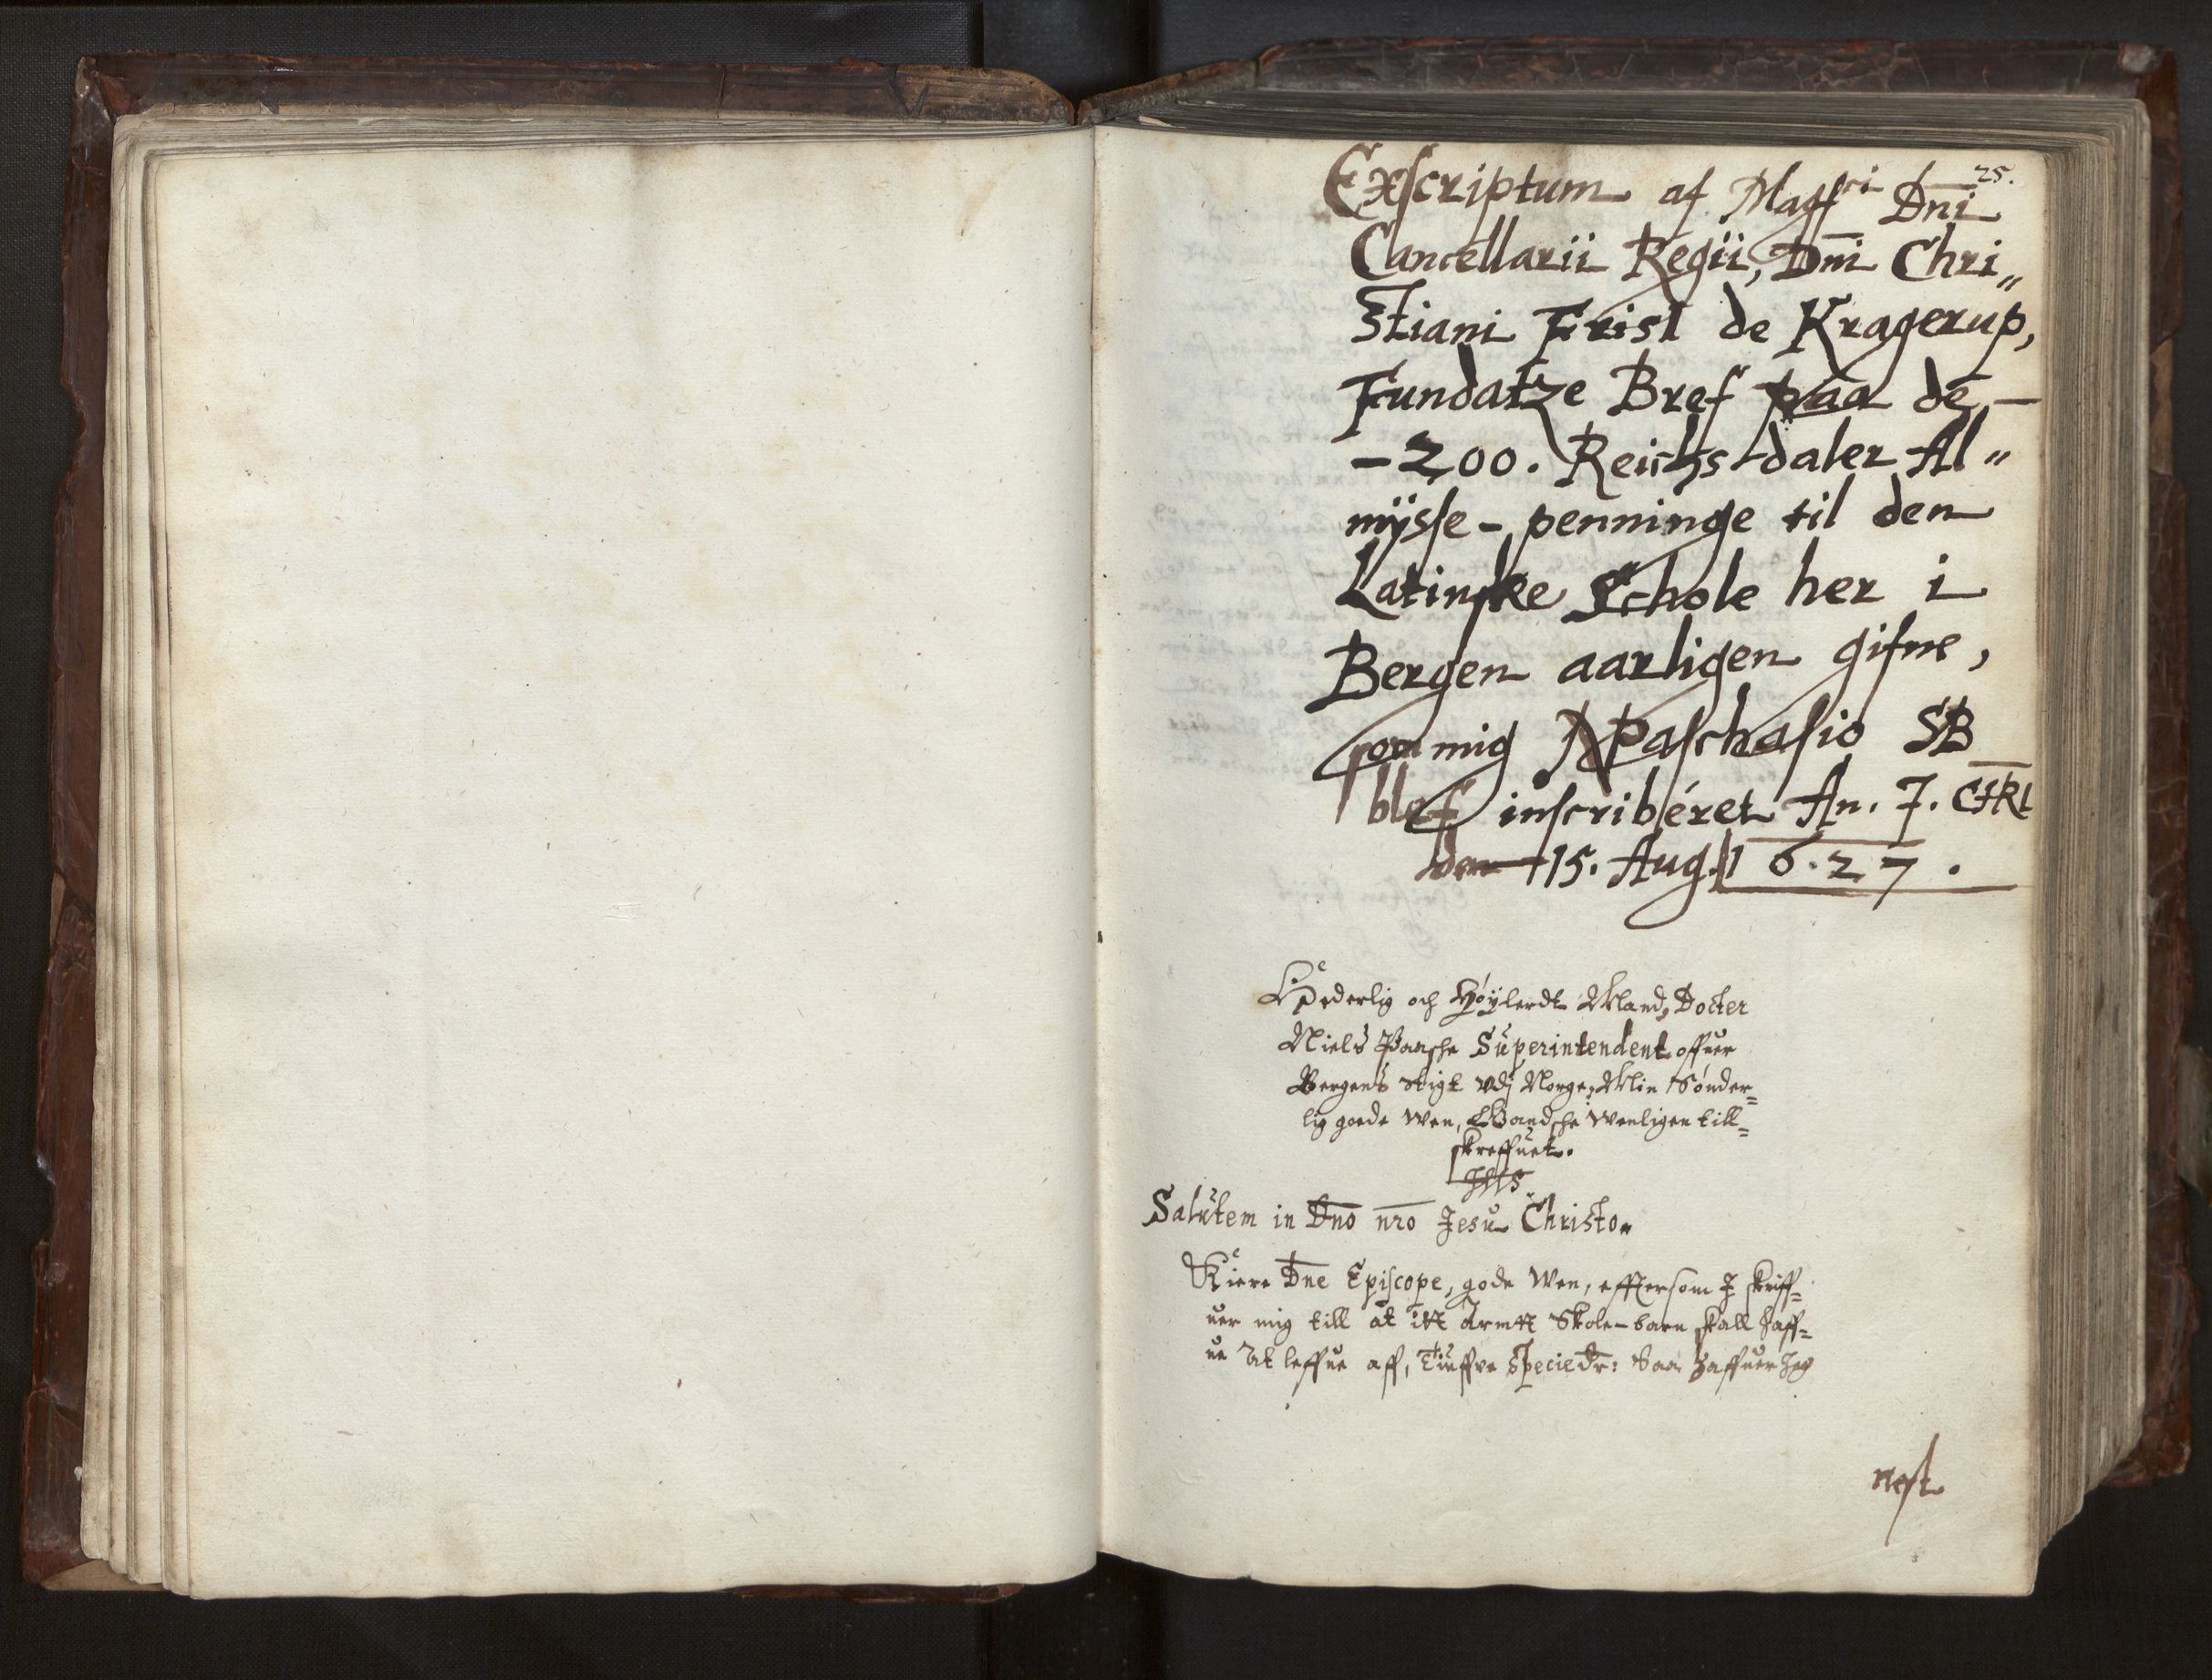 25.
Exscriptum af Magf^ci Dni
Cancellarii Regii, Dni Chri„
stiani Friis de Kragerup,
Fundatze Bref paa de –
– 200. Reichs-daler Al„
mÿsse-penninge til den
Latinske Schole her i
Bergen aarligen gifne,
som mig NPaschasio SB
blef inscriberet An. J. CHRI
den 15. Aug. 1 6.27.
Hederlig och Høÿlerdt Mand, Docter
Niels Paasche Superintendent offuer
Bergens Stigt vdj Norge, Min Sønder=
lig goede Wen, Gandsche Wenligen till=
skreffuet.
IHS
Salutem in Dno nro Jesu Christo.
Kiere Dne Episcope, gode Wen, efftersom J skriff=
uer mig till at itt Armtt Skole-barn skall haff=
ue At leffue aff, Tiuffve Specie Dr: Saa haffuer Jeg
nest